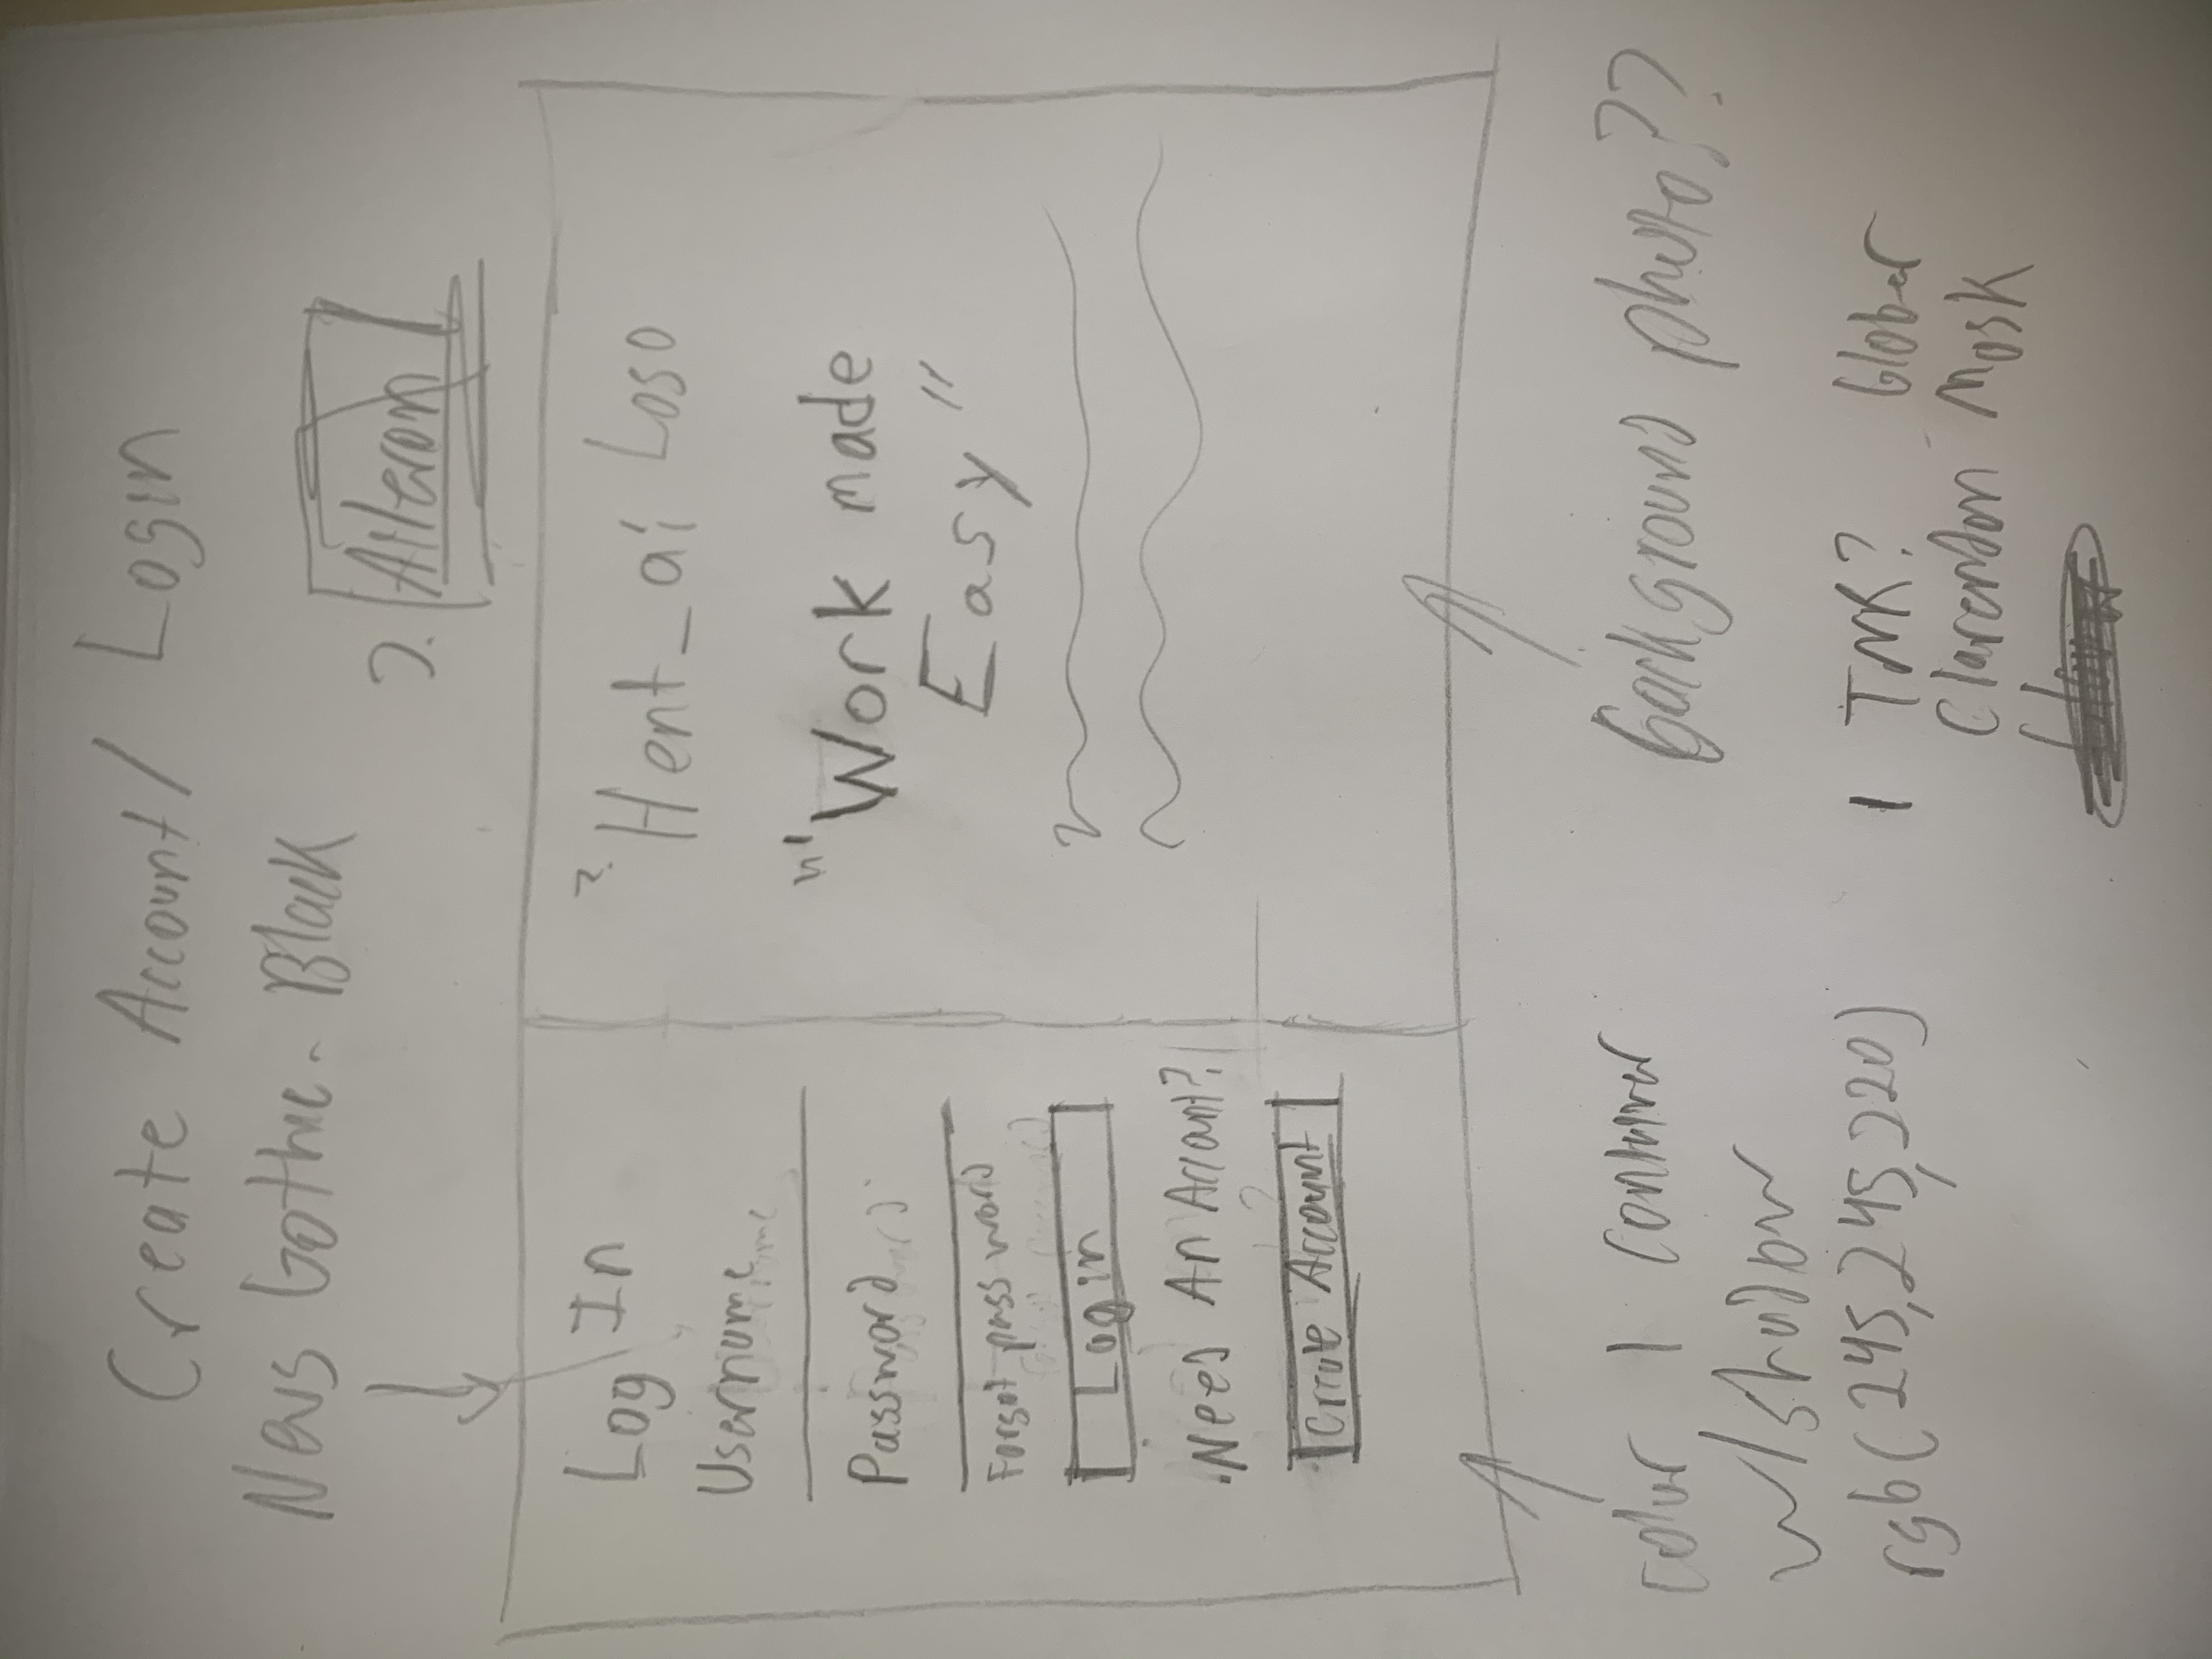 Create Account / Login
News Gothic - Black
2. Aileron
Log In
Username
Password
Forgot password
Login
Need An Account?
Create Account
2. Hent_ai Logo
"Work made
Easy"
color 1 container
w/shadow
rgb(245,245,220)
background photo??
1 TMK? Glober
Clarendon Mosk